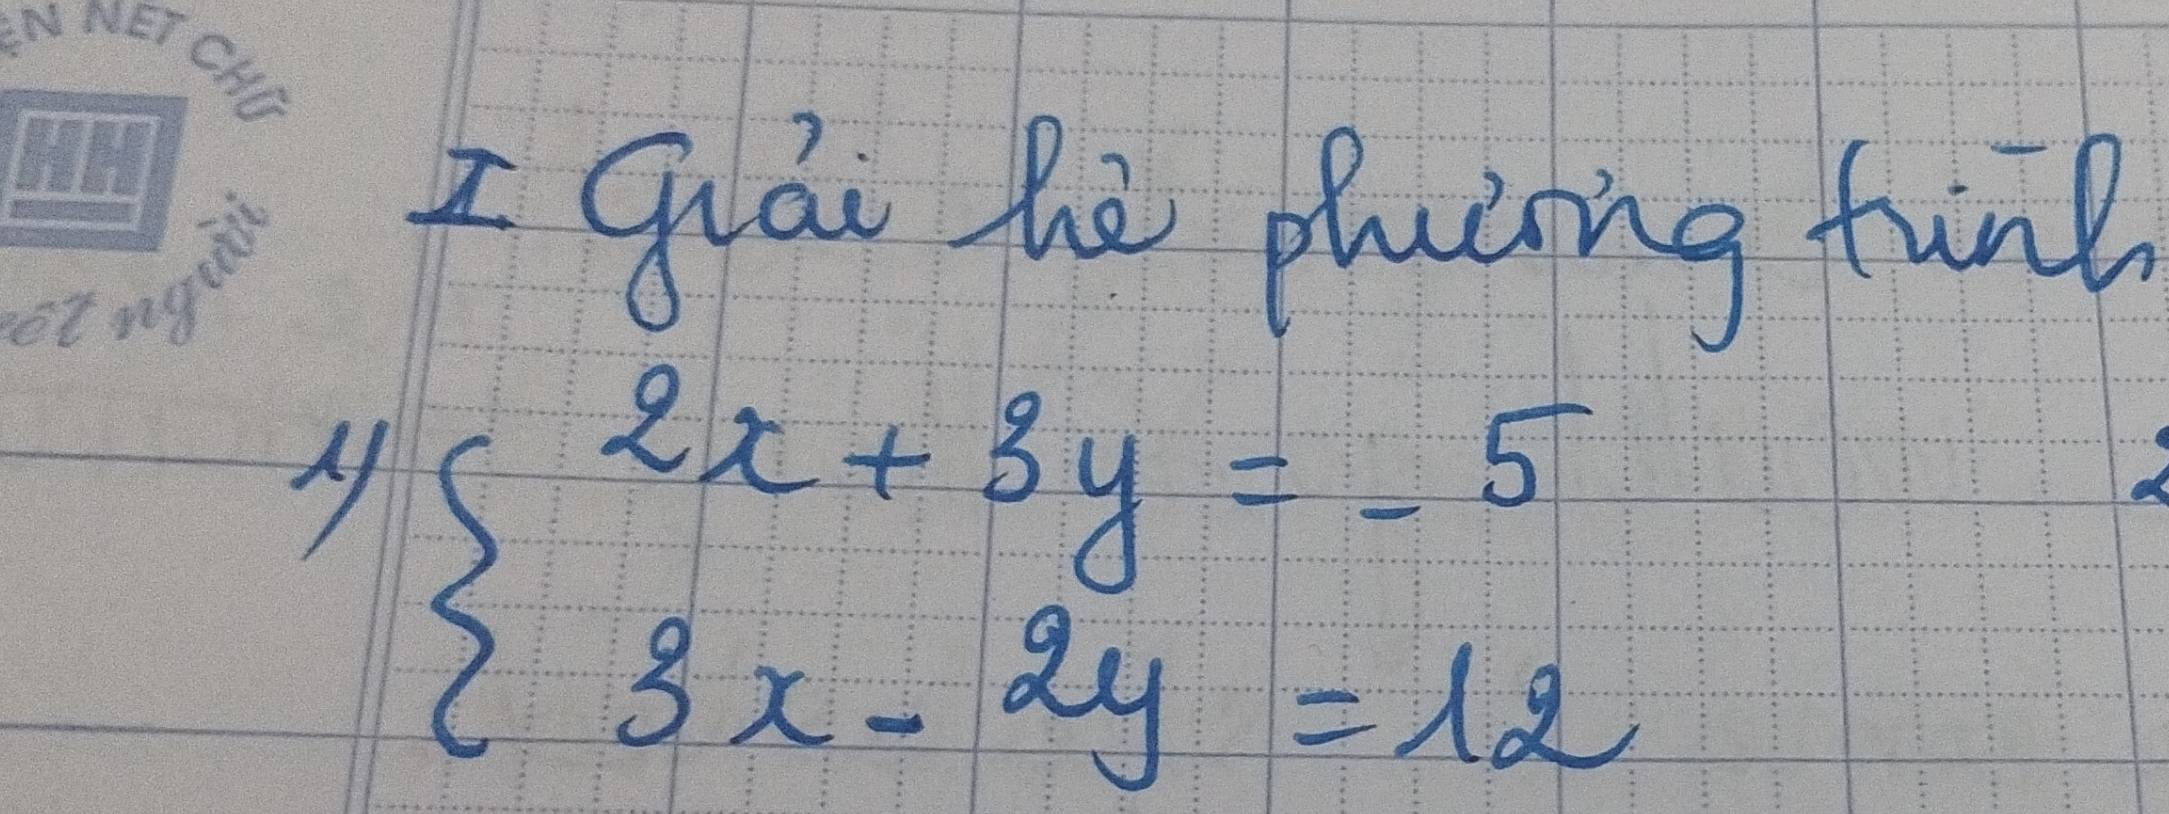 ỆN NÉT CHỮ
HH
nết người
I Giải hệ phương trình
1) { 2x + 3y = - 5
3x - 2y = 12
2